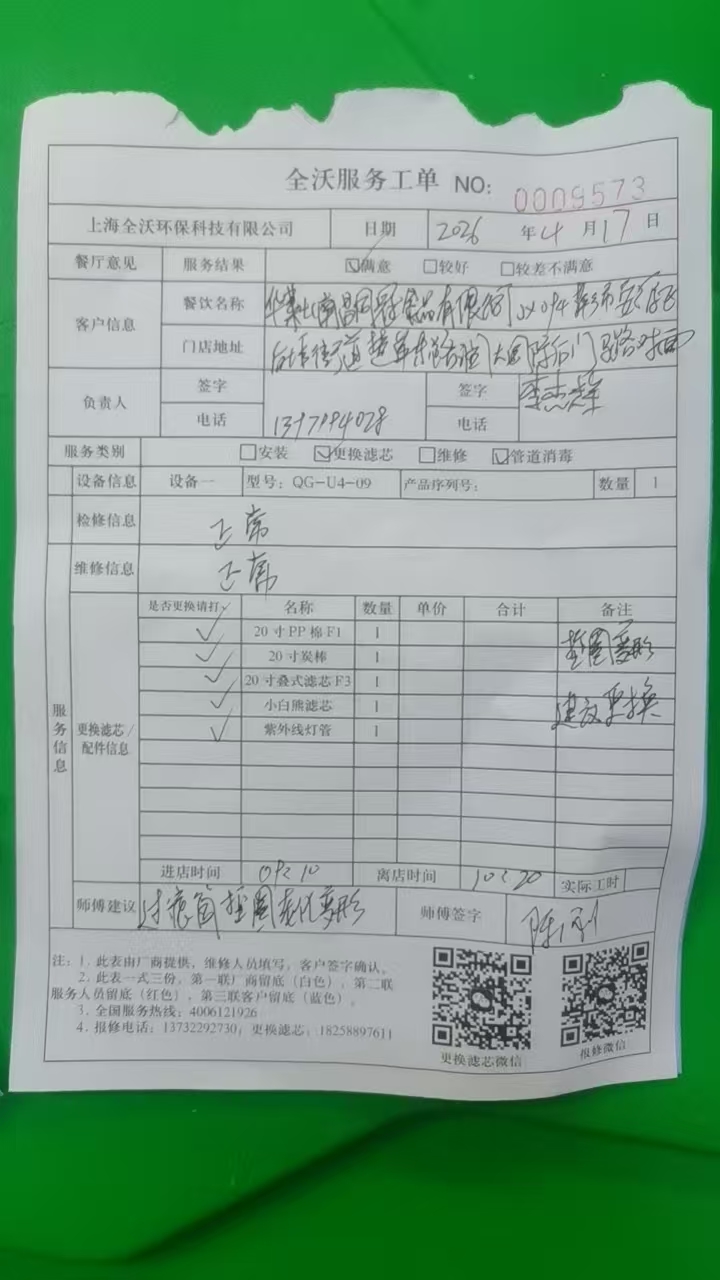 全沃服务工单 NO: 0009573
上海全沃环保科技有限公司 日期 2026 年 4 月 17 日
餐厅意见 服务结果 ☑满意 □较好 □较差不满意
客户信息 餐饮名称 南昌 食品有限公司 JX094
门店地址 街道 大国际后门 马路对面
负责人 签字 签字 李杰
电话 电话
服务类别 □安装 ☑更换滤芯 □维修 ☑管道消毒
设备信息 设备一 型号: QG-U4-09 产品序列号: 数量 1
检修信息 正常
维修信息 正常
服务信息 更换滤芯/配件信息
是否更换请打√ 名称 数量 单价 合计 备注
√ 20寸PP棉F1 1 垫圈变形
√ 20寸炭棒 1
√ 20寸叠式滤芯F3 1
√ 小白熊滤芯 1 建议更换
√ 紫外线灯管 1
进店时间 09:10 离店时间 10:20 实际工时
师傅建议 过滤筒垫圈老化变形 师傅签字 陈
注: 1. 此表由厂商提供, 维修人员填写, 客户签字确认。
2. 此表一式三份, 第一联厂商留底(白色), 第二联
服务人员留底(红色), 第三联客户留底(蓝色)。
3. 全国服务热线: 4006121926
4. 报修电话: 13732292730; 更换滤芯: 18258897611
更换滤芯微信 报修微信